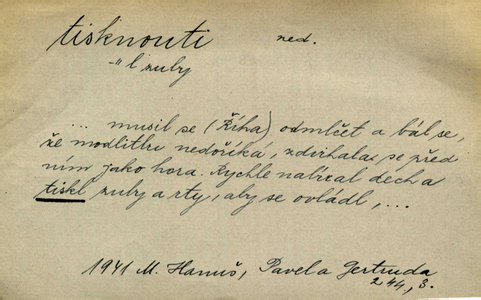 tisknouti ned.
-"l zuby
... musil se (Říha) odmlčet a bál se,
že modlitbu nedoříká, zdvihala se před
ním jako hora. Rychle nabíral dech a
tiskl zuby a rty, aby se ovládl, ...
1941 M. Hanuš, Pavel a Gertruda
244, 3.